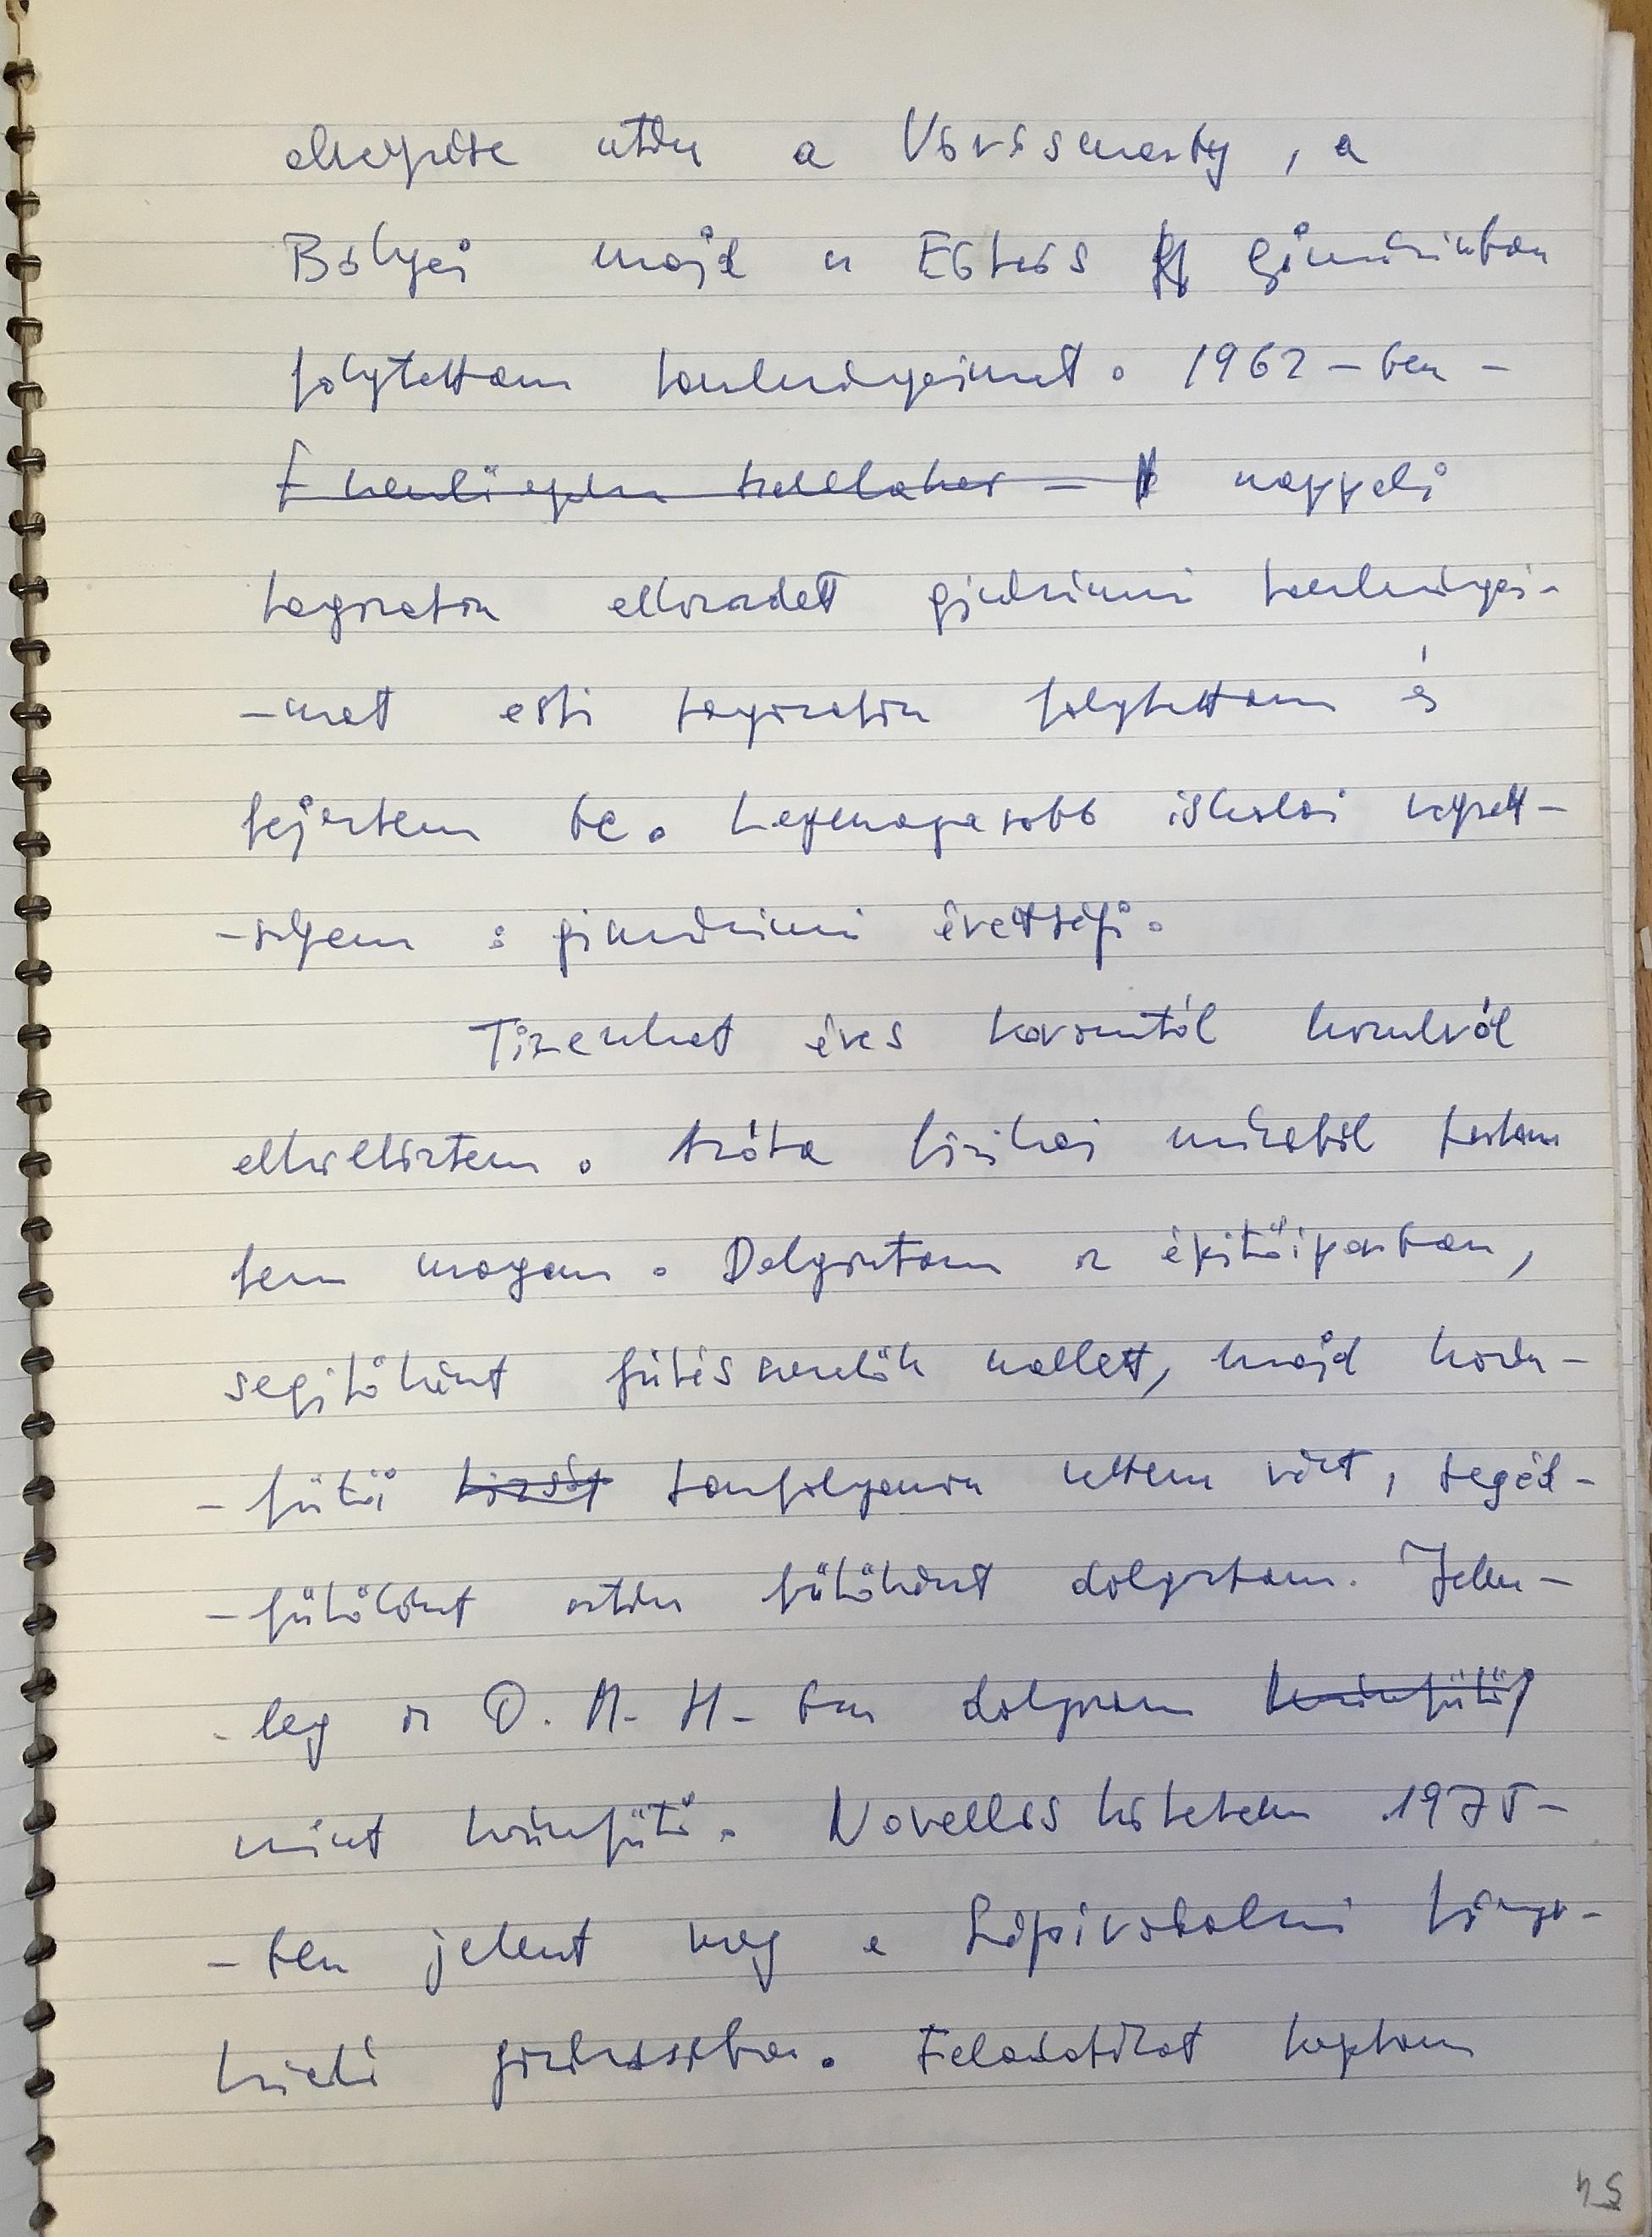 elvégzése után a Vörösmarty, a
Bólyai majd az Eötvös gimnáziumban
folytattam tanulmányaimat. 1962-ben -
nappali
tagozaton elkezdett gimnáziumi tanulmányai-
-mat esti tagozaton folytattam és
fejeztem be. Legmagasabb iskolai végzett-
-ségem : gimnáziumi érettségi.
Tizenhat éves koromtól hazulról
elköltöztem. Azóta fizikai munkából tartom
fenn magam. Dolgoztam az épitőiparban,
segitőként fűtésszerelők mellett, majd kazán-
-fütő tanfolyamon vettem részt, segéd-
-fütőként aztán fűtőként dolgoztam. Jelen-
-leg az O. M. H- ban dolgozom
mint kazánfütő. Novellás kötetem 1975-
-ben jelent meg a Szépirodalmi Könyv-
kiadó gondozásában. Feladatokat kaptam
54